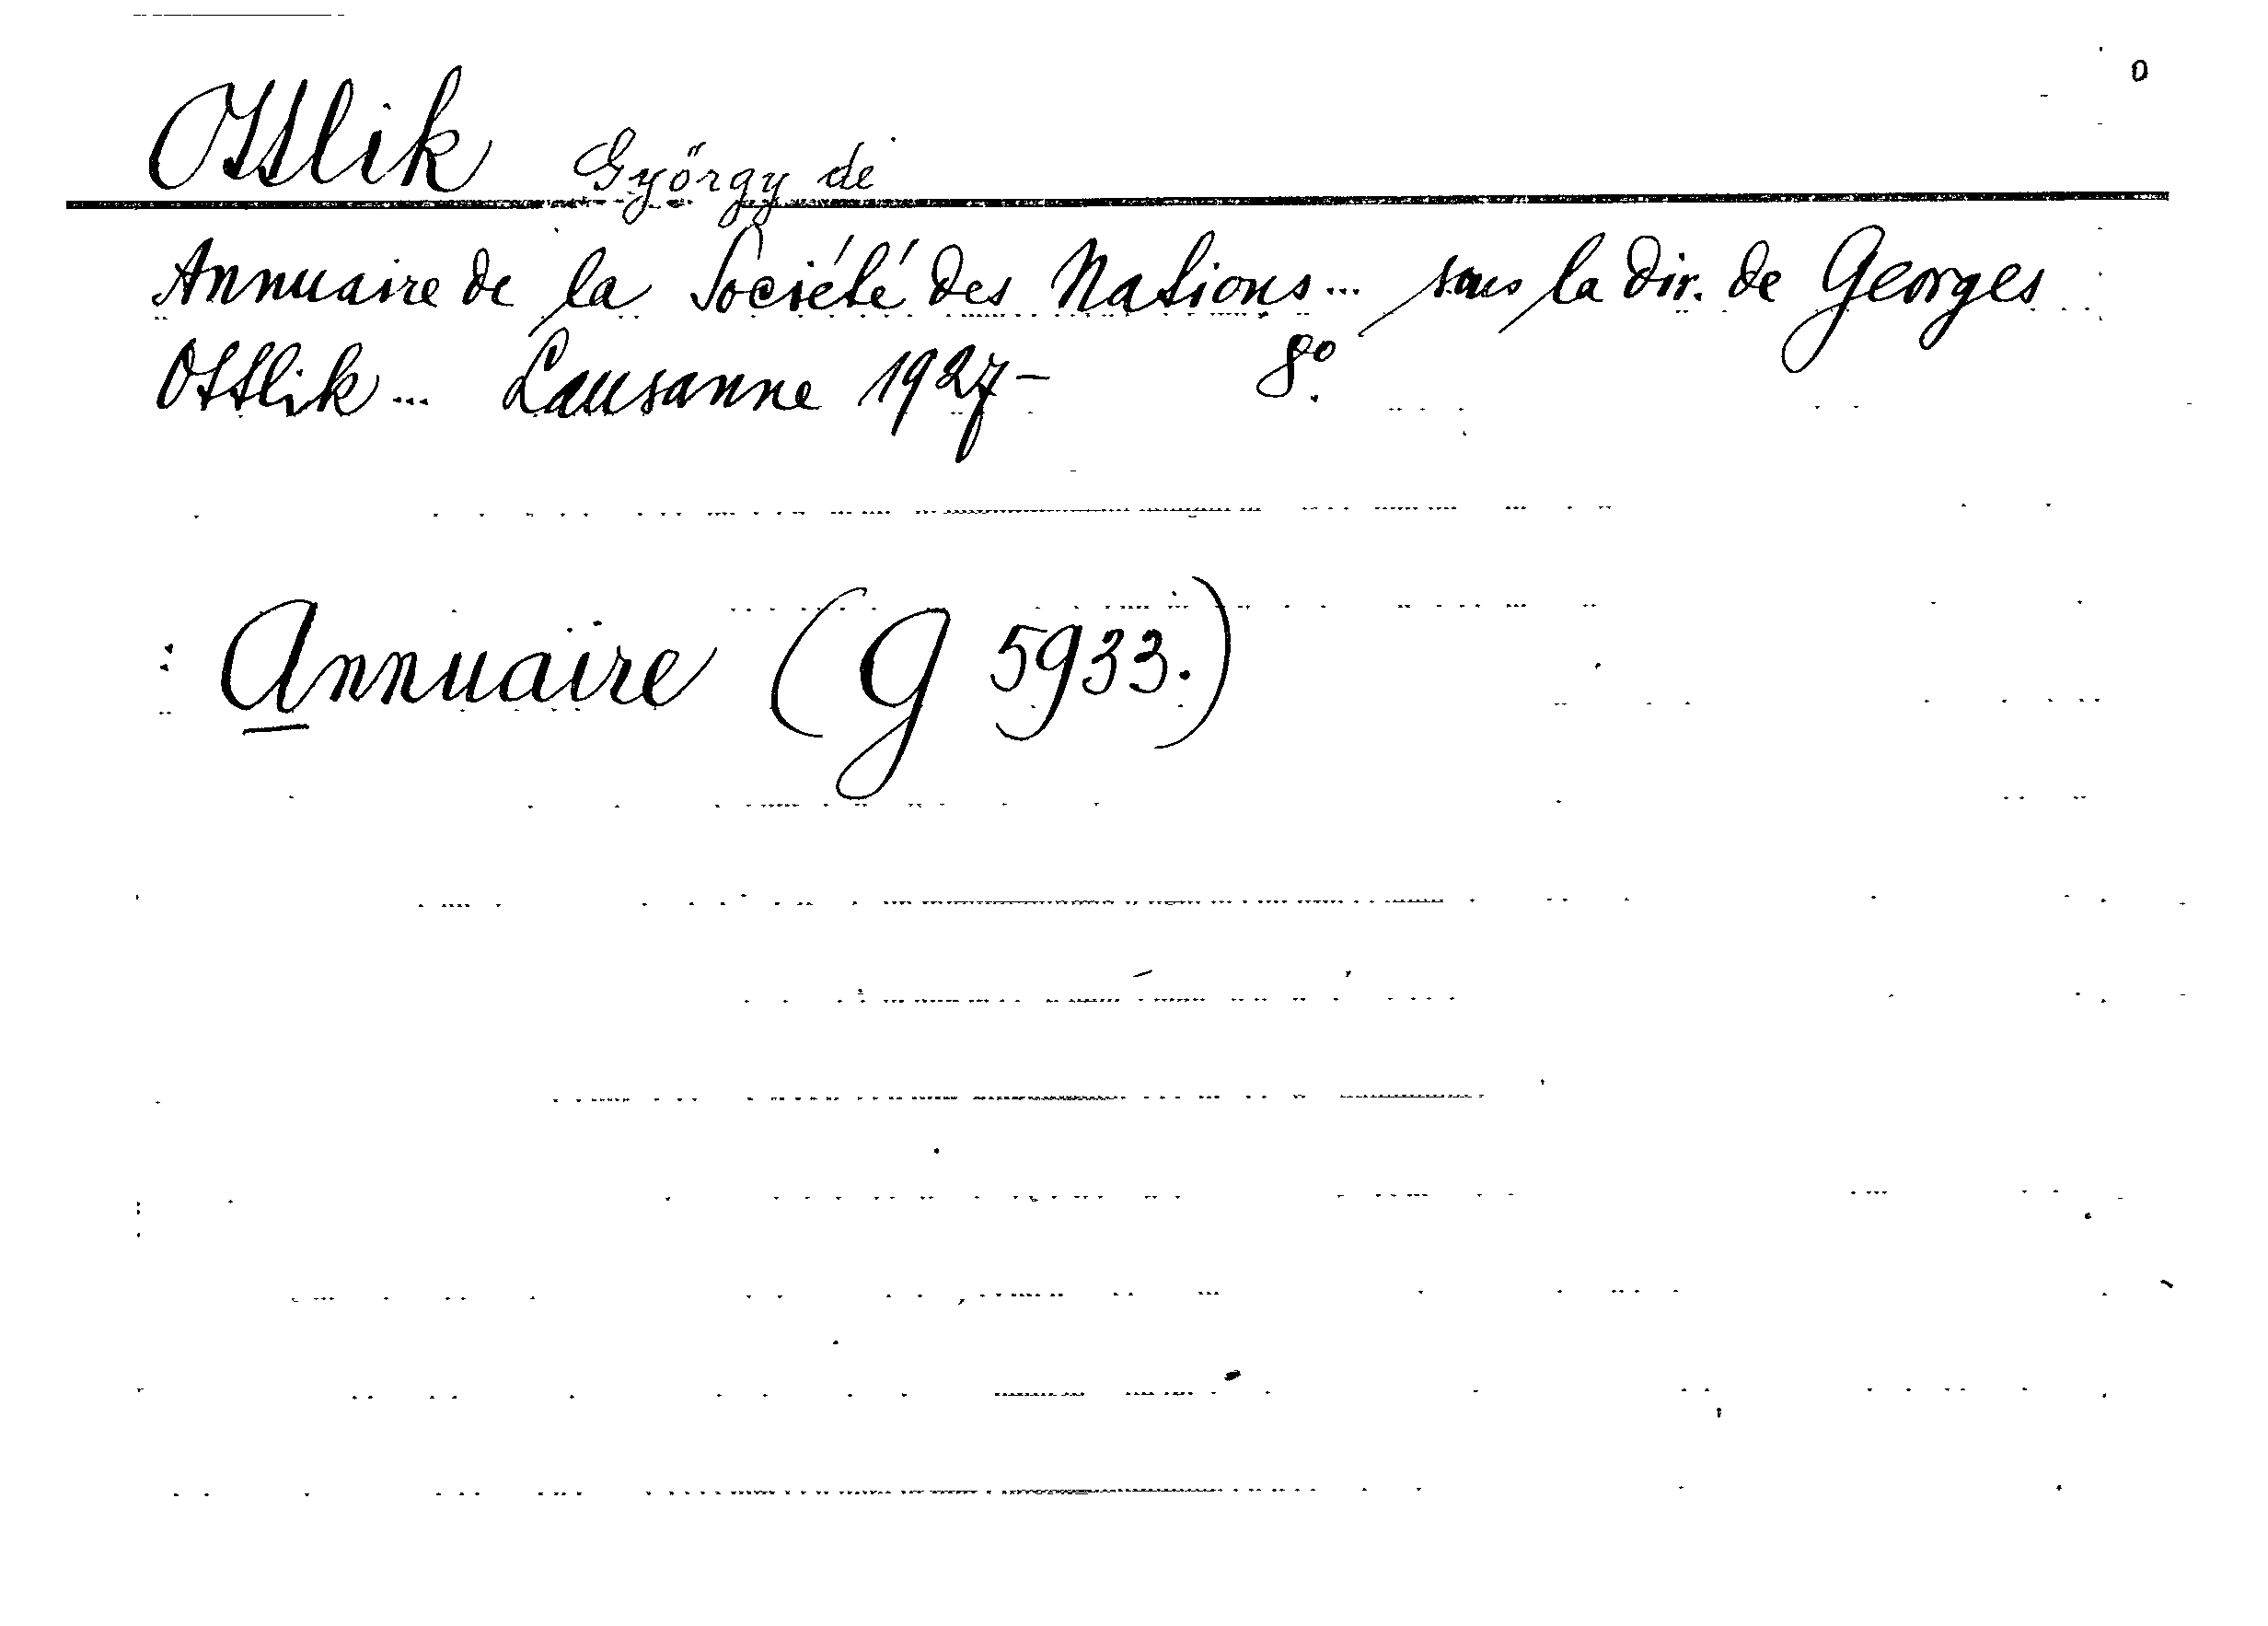 0
Ottlik György de
Annuaire de la Société des Nations... sous la dir. de Georges
Ottlik... Lausanne 1927- 8°.
: Annuaire (G 5933.)